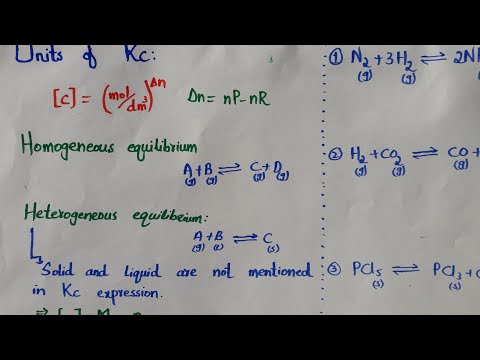 Units of Kc:
[C] = (mol/dm³)^Δn Δn = nP - nR
Homogeneous equilibrium
A + B ⇌ C + D
(g) (g) (g) (g)
Heterogeneous equilibrium:
A + B ⇌ C
(g) (l) (s)
Solid and Liquid are not mentioned
in Kc expression.
① N₂ + 3H₂ ⇌ 2N
(g) (g)
② H₂ + CO₂ ⇌ CO +
(g) (g) (g)
③ PCl₅ ⇌ PCl₃ +
(s) (s)